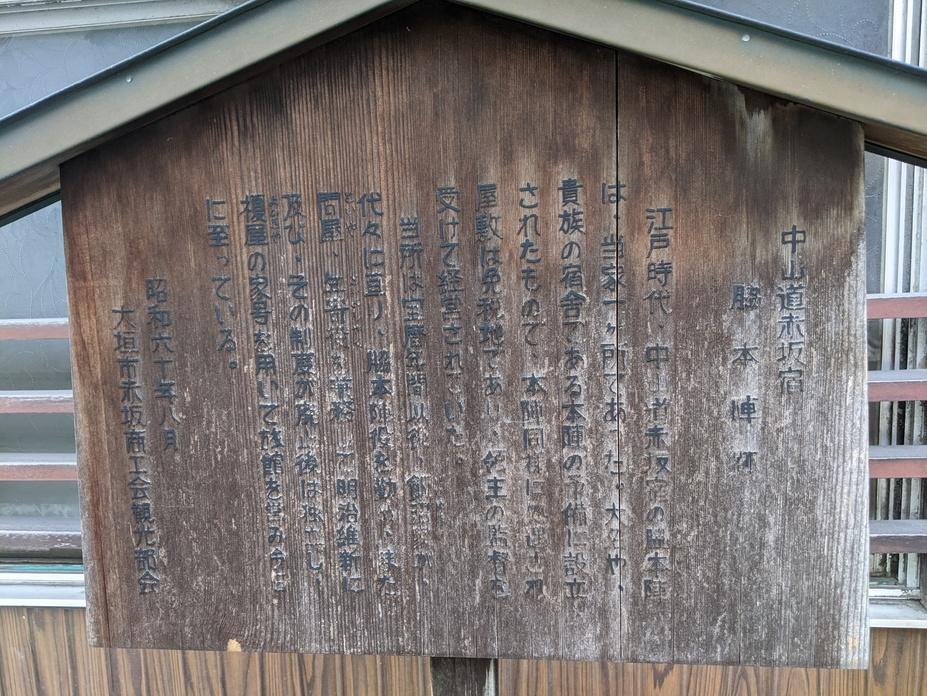 中山道赤坂宿
脇本陣跡
江戸時代、中山道赤坂宿の脇本陣
は、当家一ヶ所であった。大名や、
貴族の宿舎である本陣の予備に設立、
されたもので、本陣同様に処遇され
屋敷は免税地であり、領主の監督を
受けて経営されていた。
当所は宝暦年間以後、飯沼家が、
代々に亘り、脇本陣役を勤め、また
問屋、年寄役を兼務して明治維新に
といや
及び、その制度が廃止後は独立し、
榎屋の家号を用いて旅館を営み今日
に至っている。
昭和六十年八月
大垣市赤坂商工会観光部会